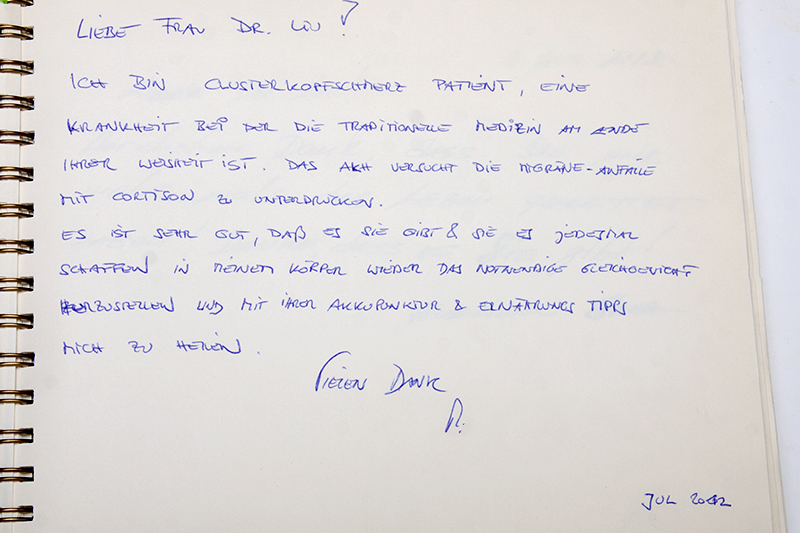 LIEBE FRAU DR. LIU !
ICH BIN CLUSTERKOPFSCHMERZ PATIENT, EINE
KRANKHEIT BEI DER DIE TRADITIONELLE MEDIZIN AM ENDE
IHRER WEISHEIT IST. DAS AKH VERSUCHT DIE MIGRÄNE-ANFÄLLE
MIT CORTISON ZU UNTERDRÜCKEN.
ES IST SEHR GUT, DAß ES SIE GIBT & SIE ES JEDESMAL
SCHAFFEN IN MEINEM KÖRPER WIEDER DAS NOTWENDIGE GLEICHGEWICHT
HERZUSTELLEN UND MIT IHRER AKKUPUNKTUR & ERNÄHRUNGS TIPPS
MICH ZU HEILEN.
VIELEN DANK
JUL